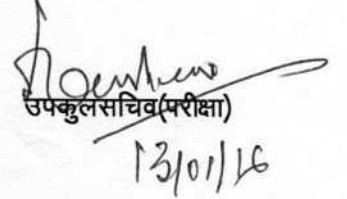 उपकुलसचिव(परीक्षा)
13/01/16